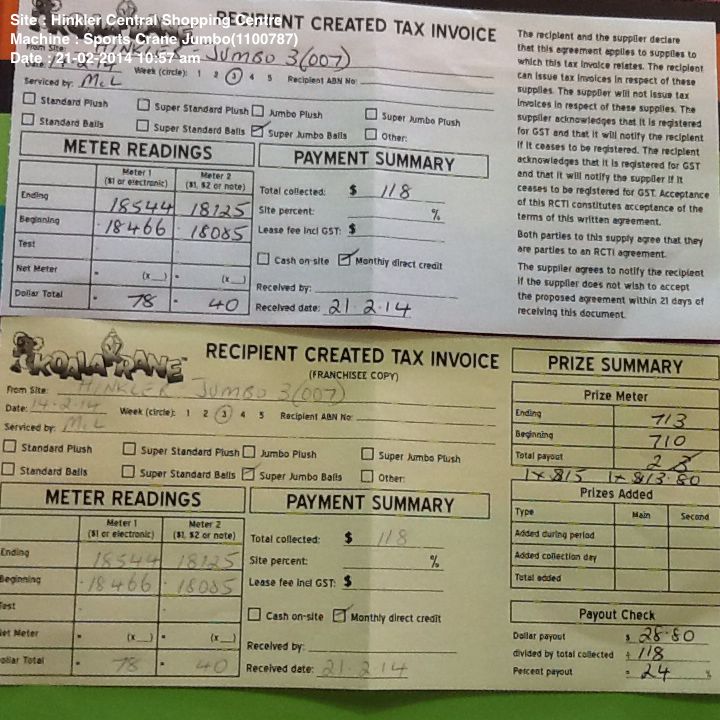 Site : Hinkler Central Shopping Centre
Machine : Sports Crane Jumbo(1100787)
Date : 21-02-2014 10:57 am
RECIPIENT CREATED TAX INVOICE
From Site: HINKLER JUMBO 3(007)
Date: 14-2-14 Week (circle): 1 2 3 4 5 Recipient ABN No:
Serviced by: McL
Standard Plush Super Standard Plush Jumbo Plush Super Jumbo Plush
Standard Balls Super Standard Balls Super Jumbo Balls Other:
METER READINGS
Meter 1 Meter 2
($1 or electronic) ($1, $2 or note)
Ending 18544 18125
Beginning 18466 18085
Test
Net Meter = (x__) = (x__)
Dollar Total = 78 = 40
PAYMENT SUMMARY
Total collected: $ 118
Site percent: %
Lease fee incl GST: $
Cash on-site Monthly direct credit
Received by:
Received date: 21.2.14
The recipient and the supplier declare
that this agreement applies to supplies to
which this tax invoice relates. The recipient
can issue tax invoices in respect of these
supplies. The supplier will not issue tax
invoices in respect of these supplies. The
supplier acknowledges that it is registered
for GST and that it will notify the recipient
if it ceases to be registered. The recipient
acknowledges that it is registered for GST
and that it will notify the supplier if it
ceases to be registered for GST. Acceptance
of this RCTI constitutes acceptance of the
terms of this written agreement.
Both parties to this supply agree that they
are parties to an RCTI agreement.
The supplier agrees to notify the recipient
if the supplier does not wish to accept
the proposed agreement within 21 days of
receiving this document.
KOALA KRANE
RECIPIENT CREATED TAX INVOICE
(FRANCHISEE COPY)
From Site: HINKLER JUMBO 3(007)
Date: 14-2-14 Week (circle): 1 2 3 4 5 Recipient ABN No:
Serviced by: McL
Standard Plush Super Standard Plush Jumbo Plush Super Jumbo Plush
Standard Balls Super Standard Balls Super Jumbo Balls Other:
METER READINGS
Meter 1 Meter 2
($1 or electronic) ($1, $2 or note)
Ending 18544 18125
Beginning 18466 18085
Test
Net Meter = (x__) = (x__)
Dollar Total = 78 = 40
PAYMENT SUMMARY
Total collected: $ 118
Site percent: %
Lease fee incl GST: $
Cash on-site Monthly direct credit
Received by:
Received date: 21.2.14
PRIZE SUMMARY
Prize Meter
Ending 713
Beginning 710
Total payout 2
1x $15 1x $13.80
Prizes Added
Type Main Second
Added during period
Added collection day
Total added
Payout Check
Dollar payout $ 28.80
divided by total collected ÷ 118
Percent payout = 24 %